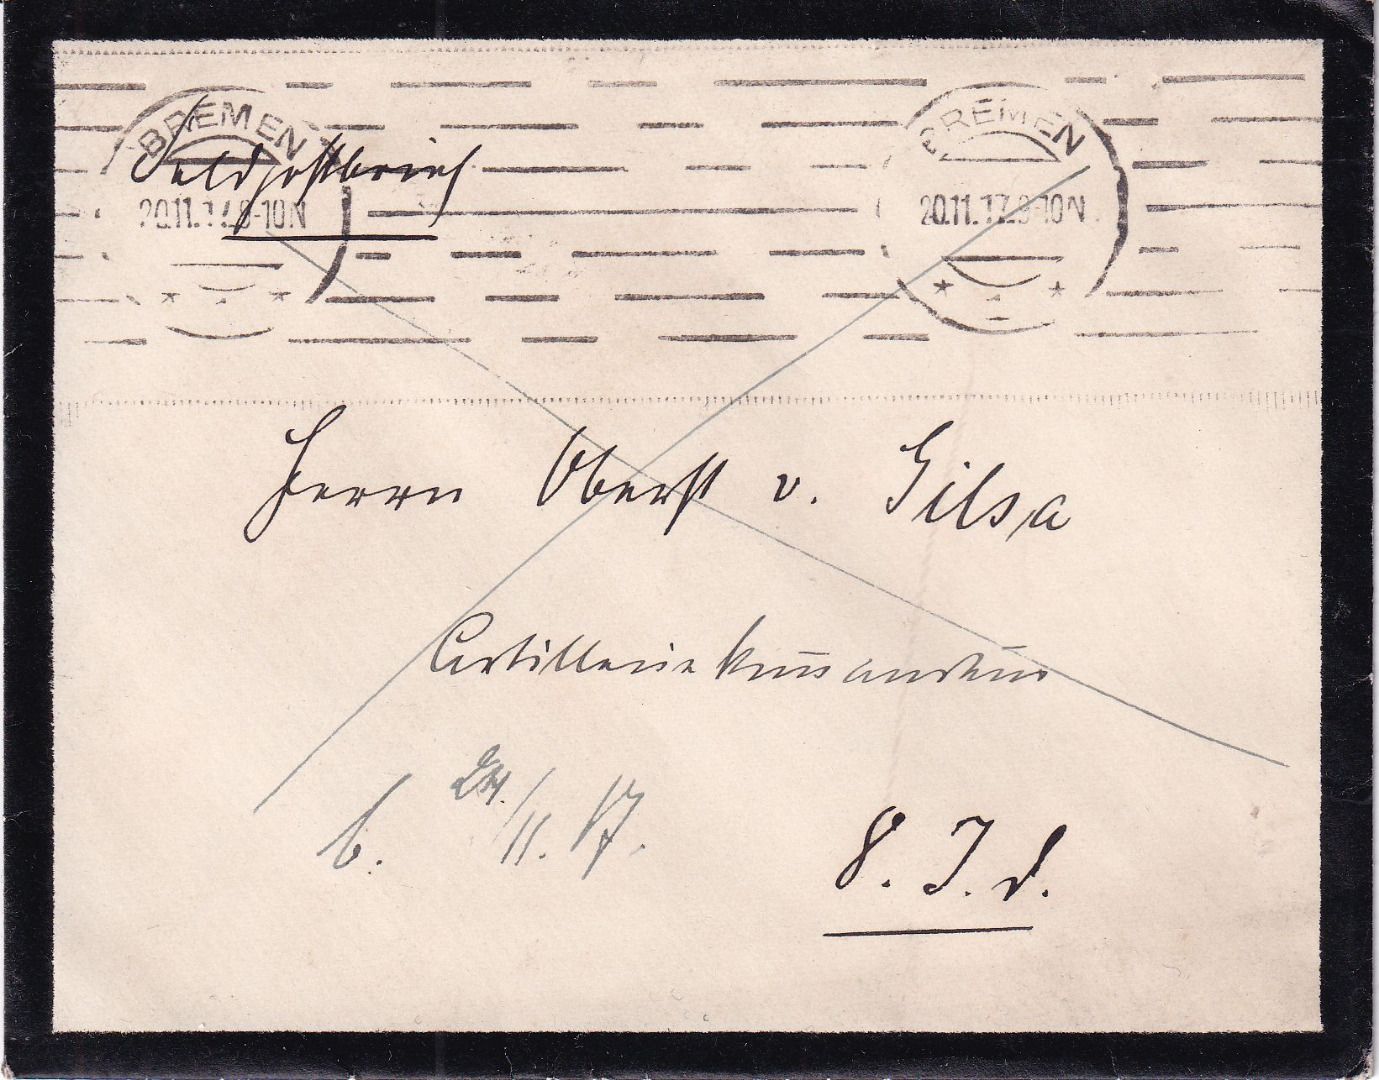 BREMEN BREMEN
Feldpostbrief
20.11.17.8-10N 20.11.17.8-10N
* 1 * * 1 *
Herrn Oberst v. Gilsa
Artilleriekommandeur
b. 24./11. 17.
8. I. D.